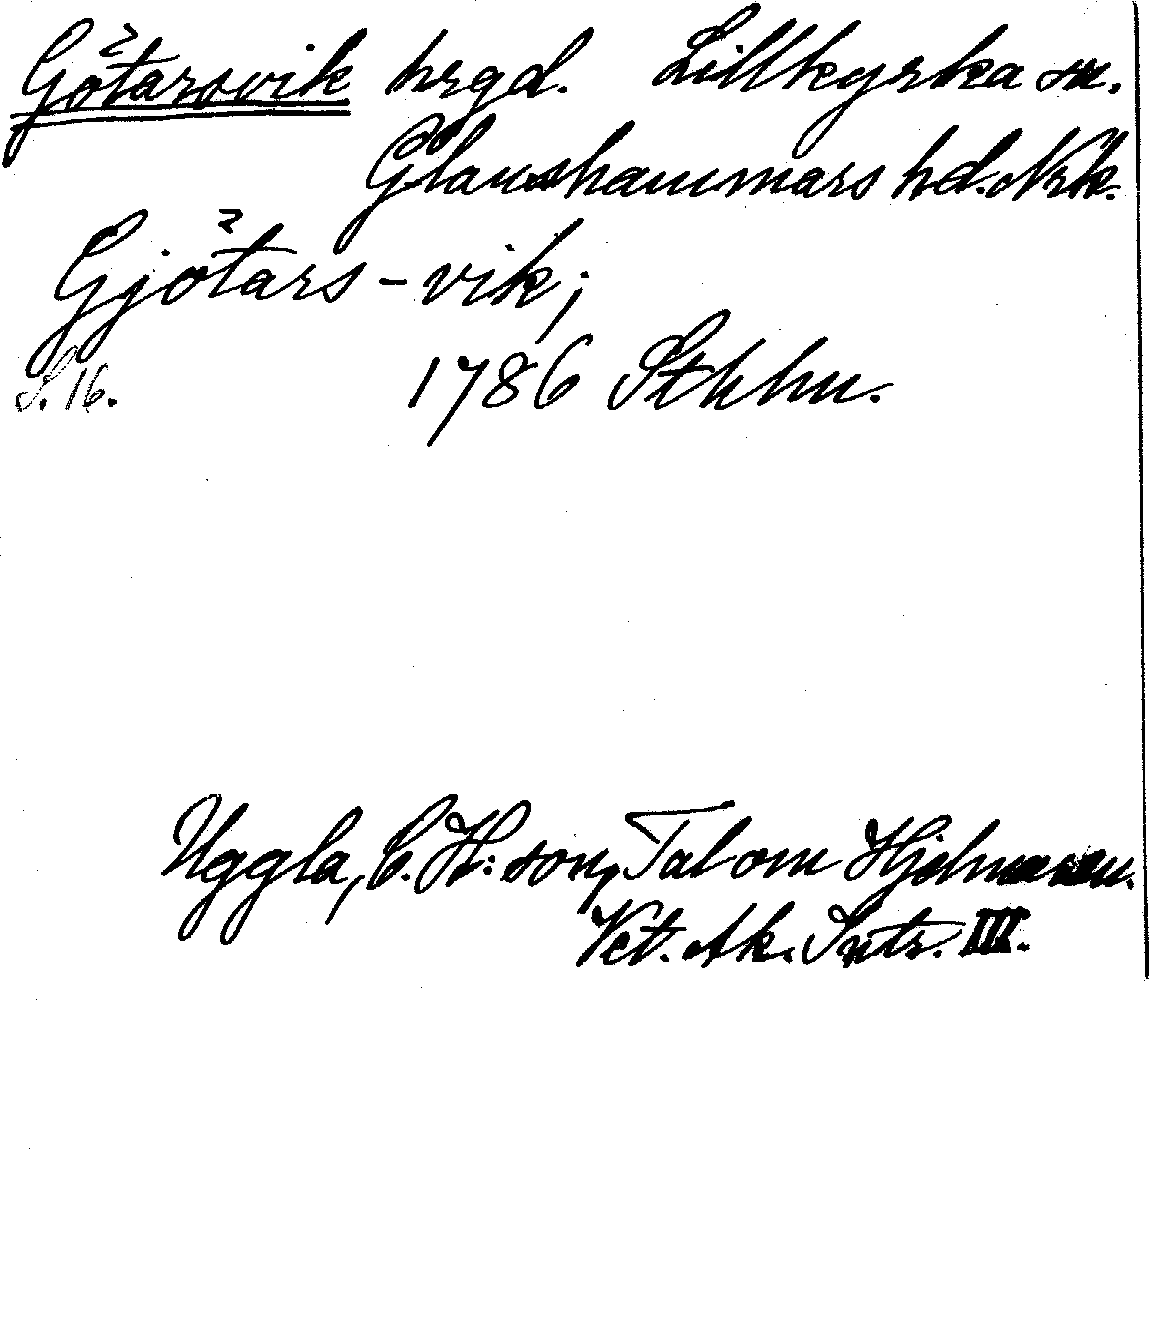 Götarsvik hrgd. Lillkyrka sn.
Glanshammars hd. Nrk.
Gjötars-vik;
S. 16. 1786 Sthhm.
Uggla, C. H:son, Tal om Hjelmaren.
Vet. Ak. Intr. III.